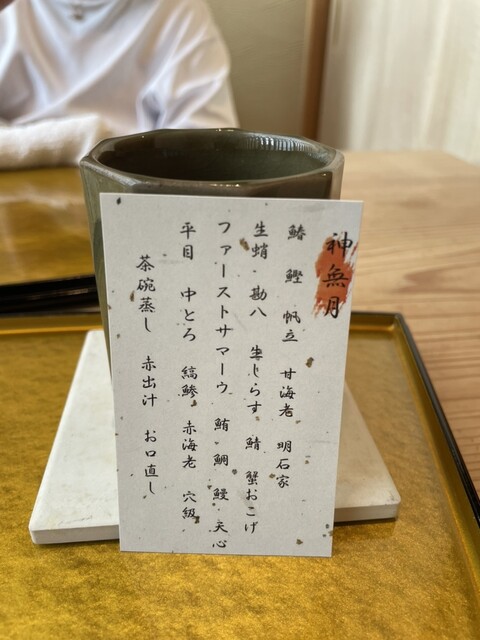 神無月
鰆 鰹 帆立 甘海老 明石家
生蛸 勘八 生しらす 鯖 蟹おこげ
ファーストサマーウ 鮪 鯛 鰻 天心
平目 中とろ 縞鯵 赤海老 穴級
茶碗蒸し 赤出汁 お口直し